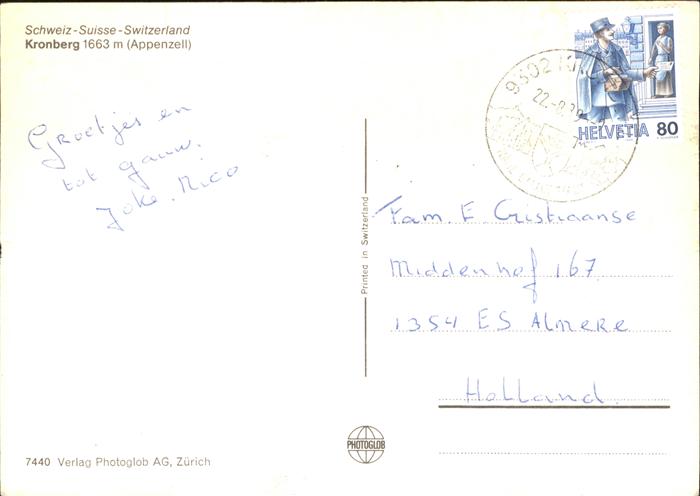 Schweiz-Suisse-Switzerland
Kronberg 1663 m (Appenzell)
Groetjes en
tot gauw.
Joke. Nico
HELVETIA 80
Printed in Switzerland
Fam. E. Cristiaanse
Middenhof 167.
1354 ES Almere
Holland.
PHOTOGLOB
7440 Verlag Photoglob AG, Zürich